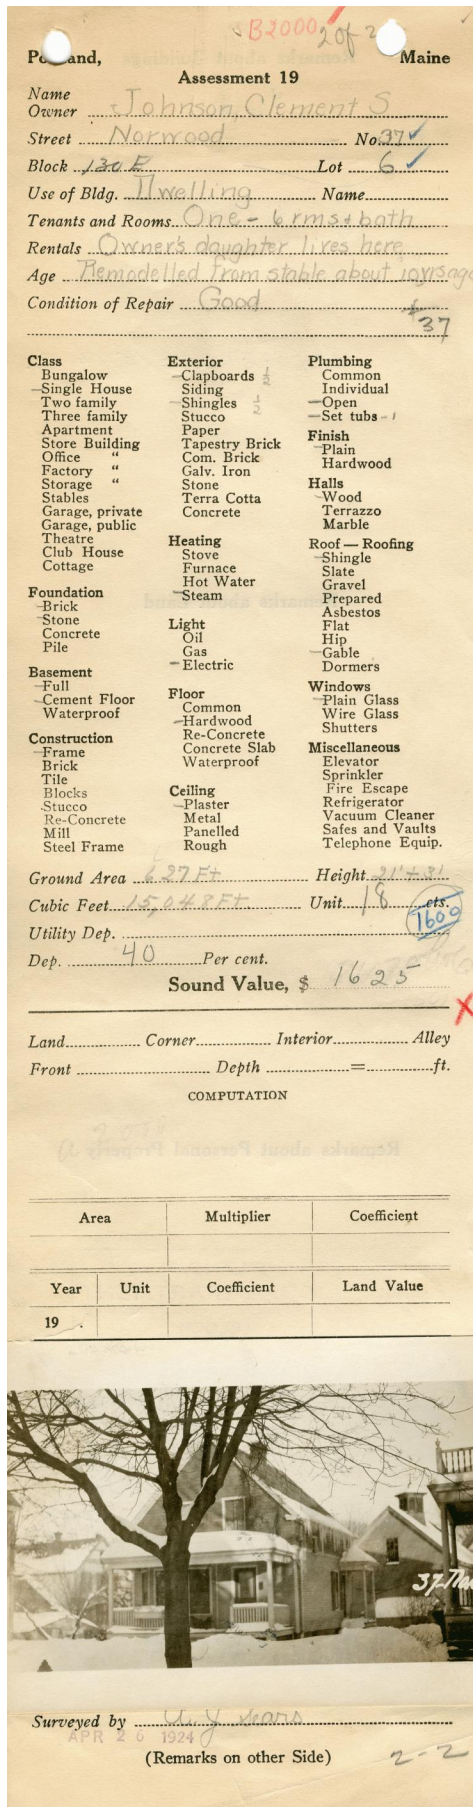 B2000 2 of 2
Portland, Maine
Assessment 19
Name
Owner Johnson, Clement S
Street Norwood No. 37 ✓
Block 130 E Lot 6 ✓
Use of Bldg. Dwelling Name
Tenants and Rooms One - 6 rms + bath
Rentals Owner's daughter lives here
Age Remodelled from stable about 10 yrs ago
Condition of Repair Good
37
Class
Bungalow
Single House
Two family
Three family
Apartment
Store Building
Office "
Factory "
Storage "
Stables
Garage, private
Garage, public
Theatre
Club House
Cottage
Foundation
Brick
Stone
Concrete
Pile
Basement
Full
Cement Floor
Waterproof
Construction
Frame
Brick
Tile
Blocks
Stucco
Re-Concrete
Mill
Steel Frame
Exterior
Clapboards ½
Siding
Shingles ½
Stucco
Paper
Tapestry Brick
Com. Brick
Galv. Iron
Stone
Terra Cotta
Concrete
Heating
Stove
Furnace
Hot Water
Steam
Light
Oil
Gas
Electric
Floor
Common
Hardwood
Re-Concrete
Concrete Slab
Waterproof
Ceiling
Plaster
Metal
Panelled
Rough
Plumbing
Common
Individual
Open
Set tubs - 1
Finish
Plain
Hardwood
Halls
Wood
Terrazzo
Marble
Roof — Roofing
Shingle
Slate
Gravel
Prepared
Asbestos
Flat
Hip
Gable
Dormers
Windows
Plain Glass
Wire Glass
Shutters
Miscellaneous
Elevator
Sprinkler
Fire Escape
Refrigerator
Vacuum Cleaner
Safes and Vaults
Telephone Equip.
Ground Area 627 Ft Height 21' + 3'
Cubic Feet 15,048 Ft. Unit 18 cts.
1600
Utility Dep.
Dep. 40 Per cent.
Sound Value, $ 1625
X
Land Corner Interior Alley
Front Depth = ft.
COMPUTATION
Area Multiplier Coefficient
Year Unit Coefficient Land Value
19 .
37-
Surveyed by Sears
APR 26 1924
(Remarks on other Side)
2-2